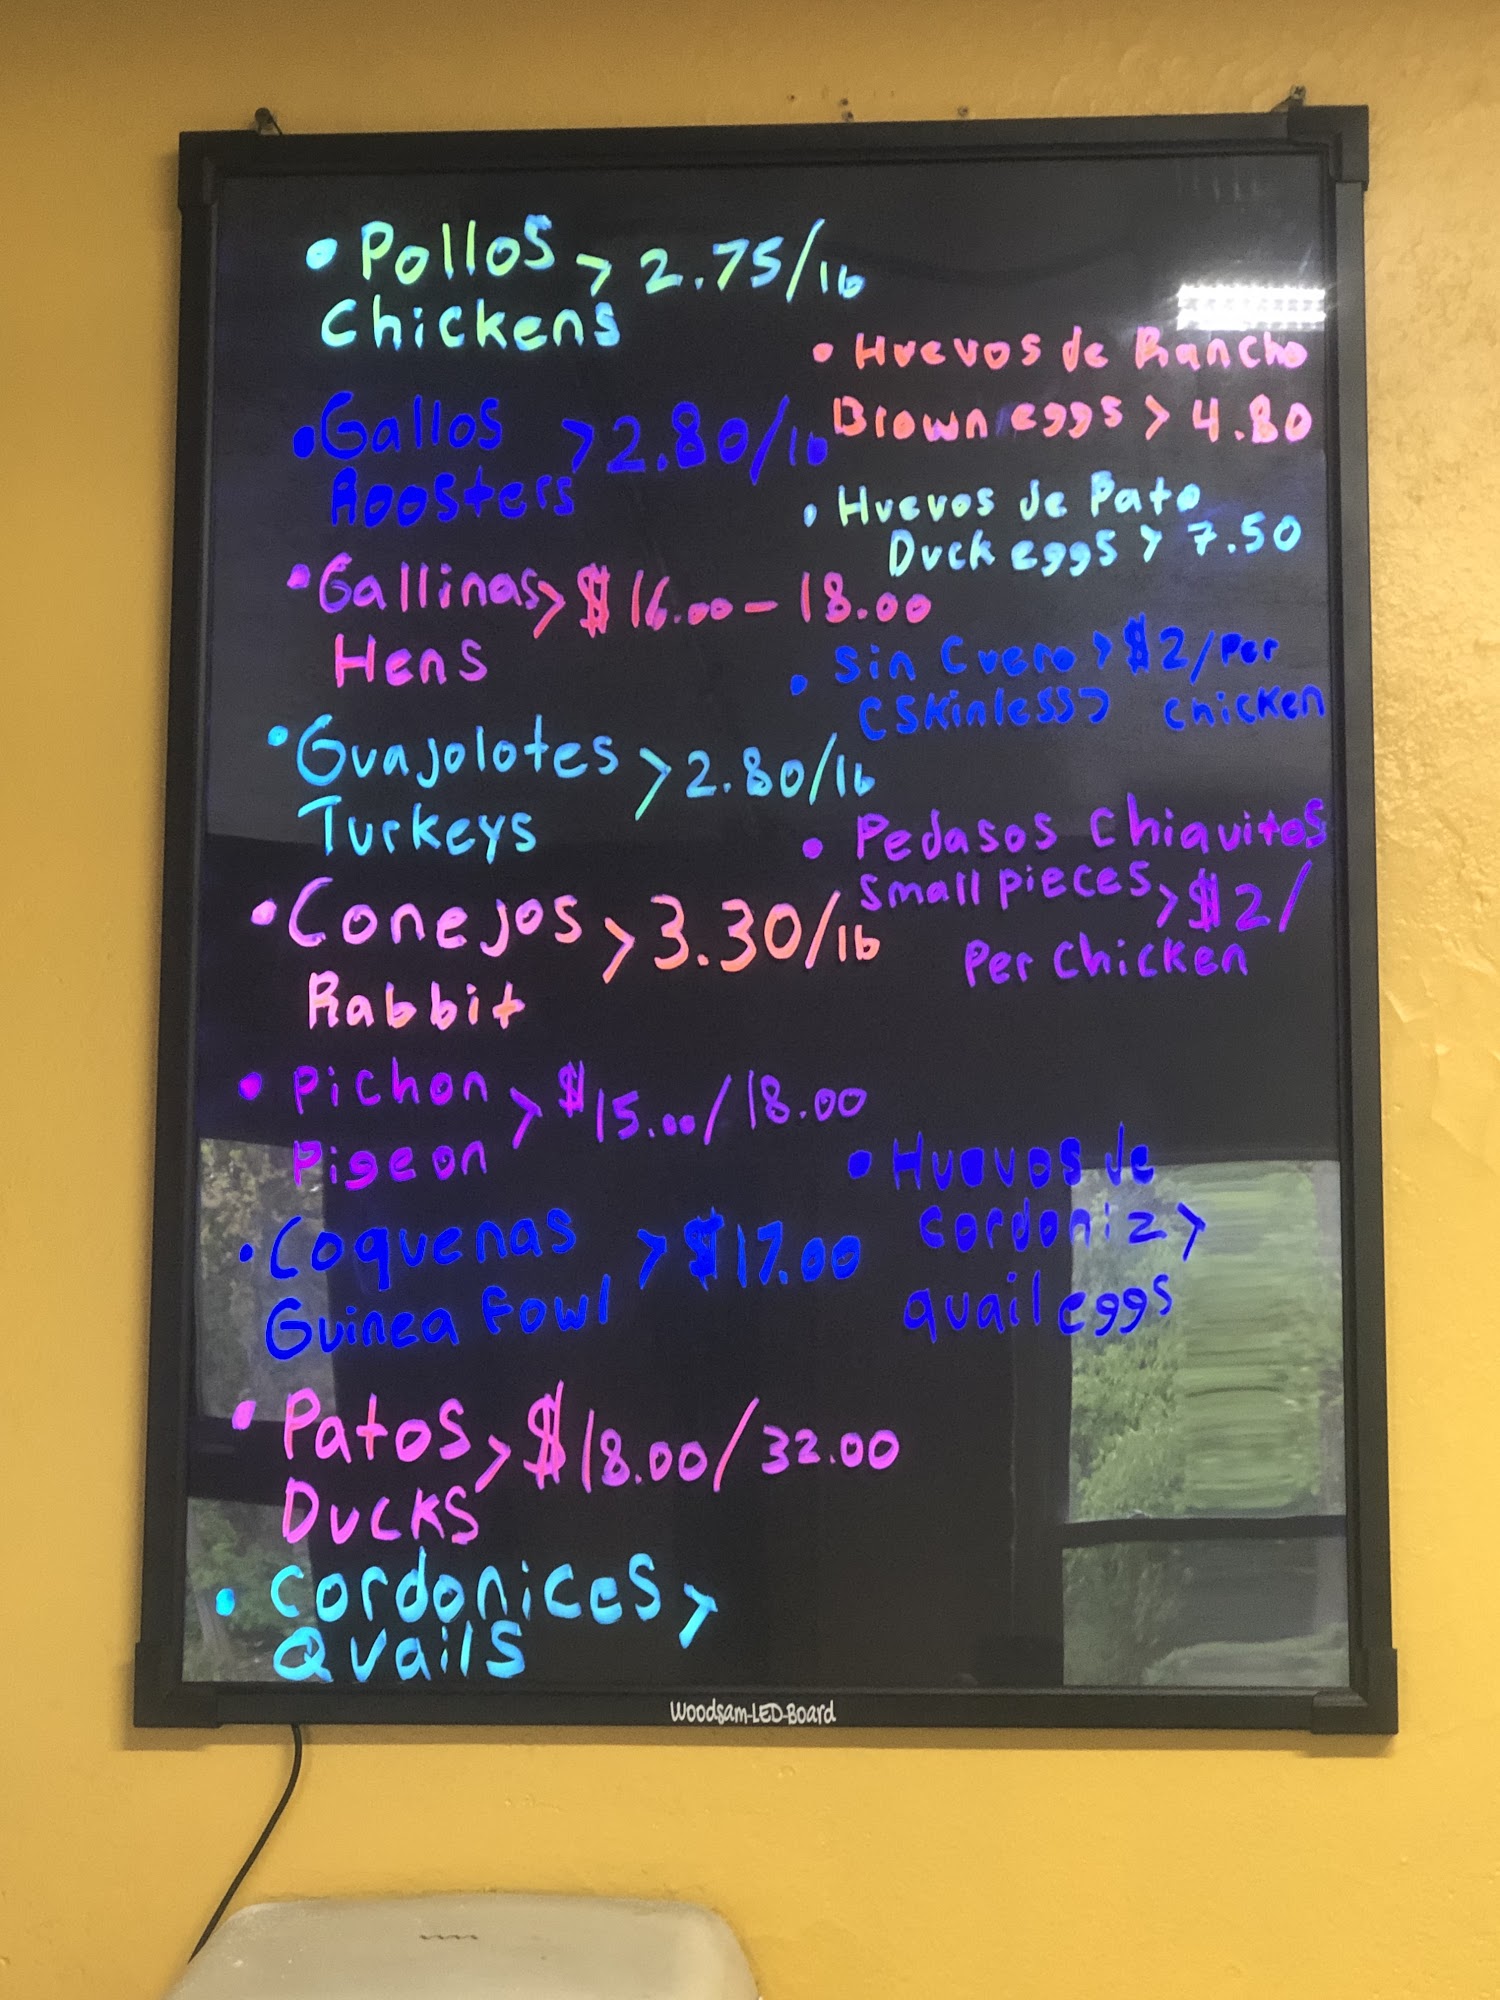 • Pollos > 2.75/lb
Chickens
• Gallos > 2.80/lb
Roosters
• Gallinas > $16.00 - 18.00
Hens
• Guajolotes > 2.80/lb
Turkeys
• Conejos > 3.30/lb
Rabbit
• Pichon > $15.00/18.00
Pigeon
• Coquenas > $17.00
Guinea Fowl
• Patos > $18.00/32.00
Ducks
• Cordonices >
Quails
• Huevos de Rancho
Brown eggs > 4.80
• Huevos de Pato
Duck eggs > 7.50
• Sin Cuero > $2/Per
(Skinless) chicken
• Pedasos Chiquitos
Small pieces > $2/
Per Chicken
• Huevos de
Cordoniz >
quail eggs
Woodsam-LED-Board